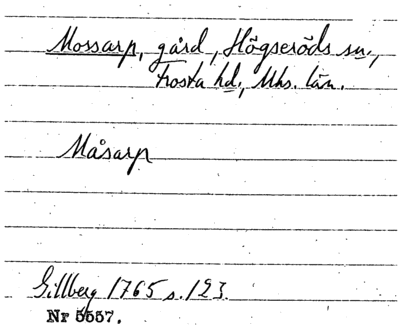 Mossarp, gård, Högseröds sn.,
Frosta hd., Mhs. län.
Måsarp
Gillberg 1765 s. 123.
Nr 5557.